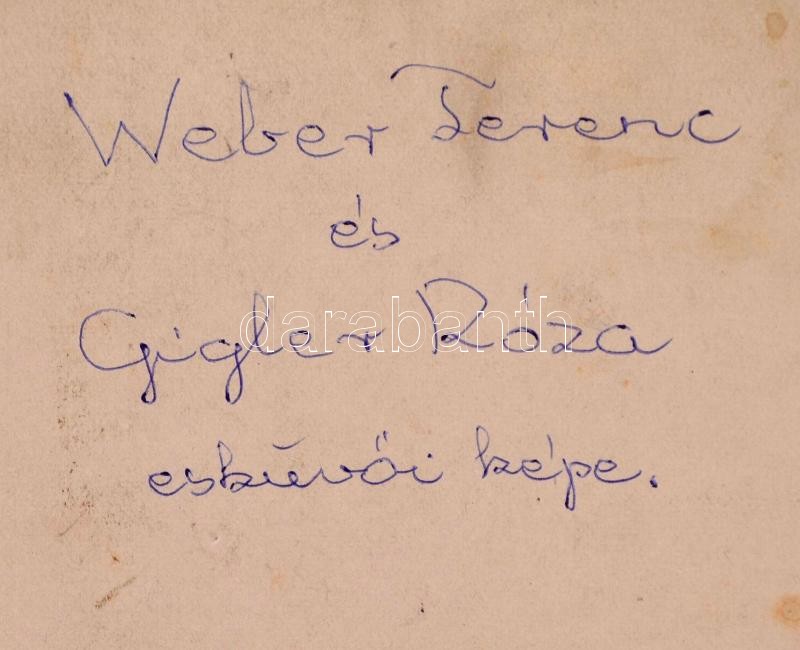 Weber Ferenc
és
Gigler Róza
esküvői képe.
darabanth